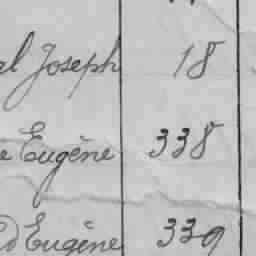 Joseph 18
Eugène 338
Eugène 339